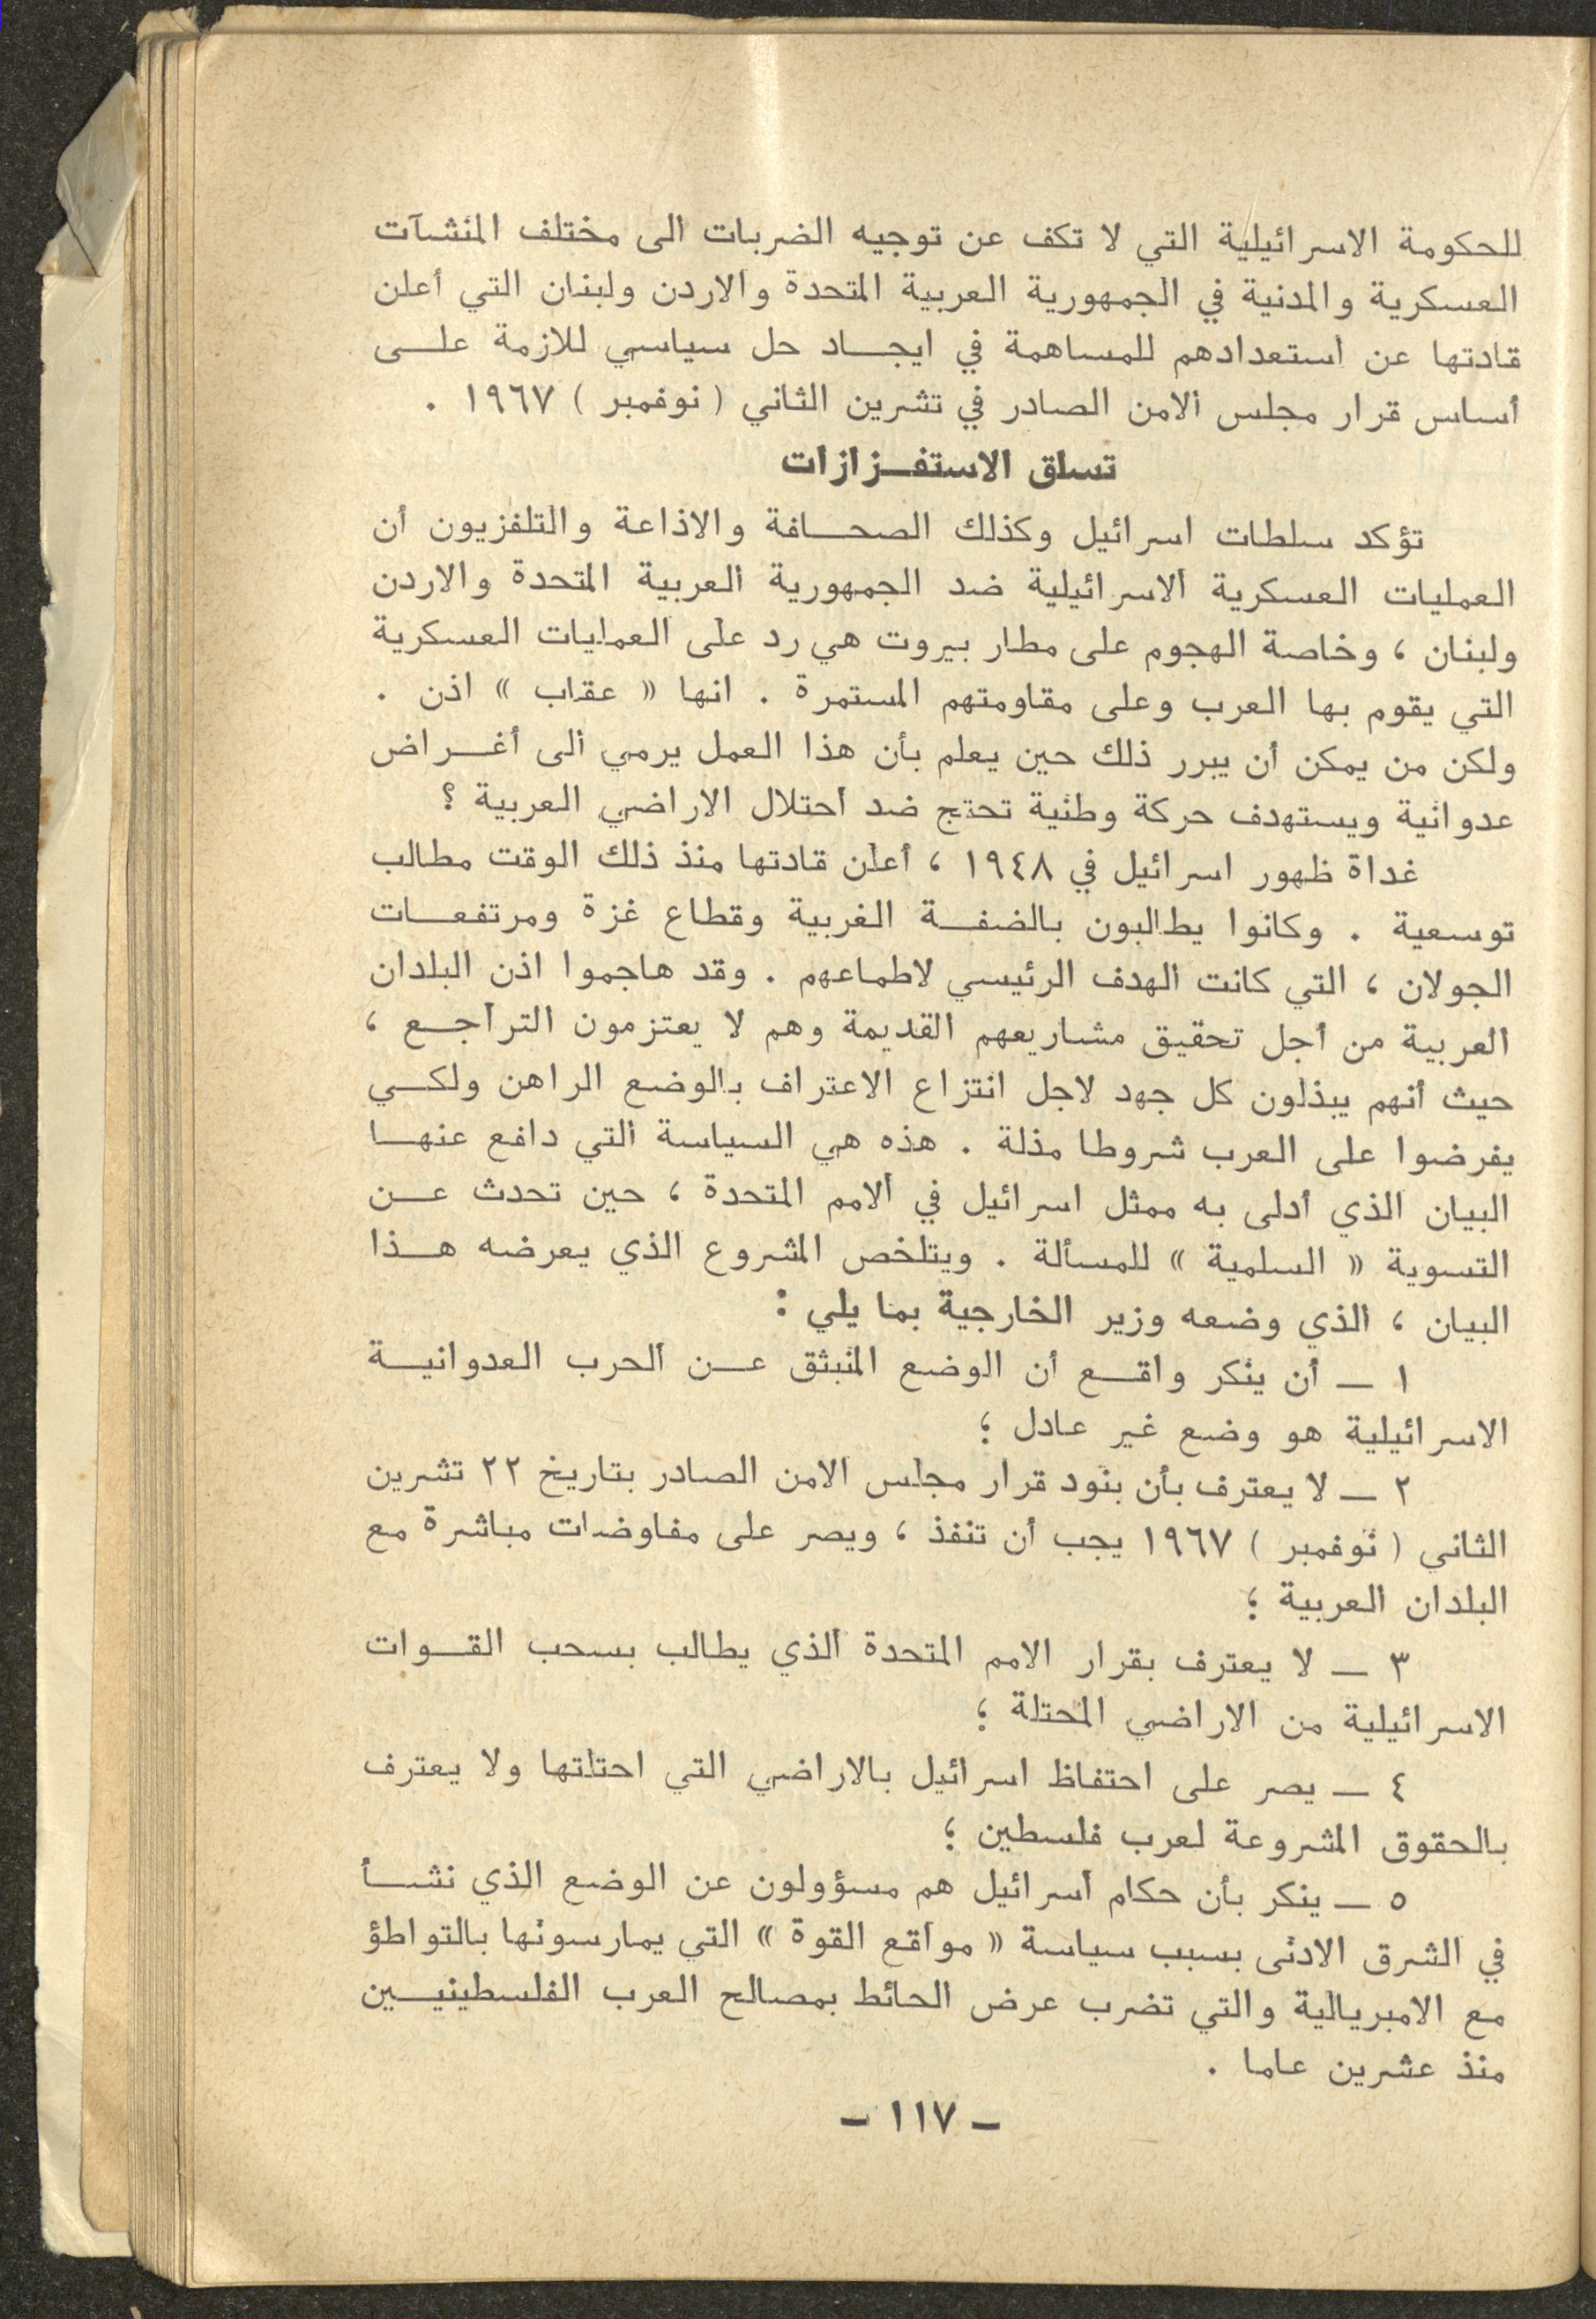 للحكومة الاسرائيلية التي لا تكف عن توجيه الضربات الى مختلف المنشآت
العسكرية والمدنية في الجمهورية العربية المتحدة والاردن ولبنان التي أعلن
قادتها عن استعدادهم للمساهمة في ايجاد حل سياسي للازمة على
أساس قرار مجلس الامن الصادر في تشرين الثاني ( نوفمبر ) ١٩٦٧ .
تسلق الاستفزازات
تؤكد سلطات اسرائيل وكذلك الصحافة والاذاعة والتلفزيون أن
العمليات العسكرية الاسرائيلية ضد الجمهورية العربية المتحدة والاردن
ولبنان ، وخاصة الهجوم على مطار بيروت هي رد على العمليات العسكرية
التي يقوم بها العرب وعلى مقاومتهم المستمرة . انها « عقاب » اذن .
ولكن من يمكن أن يبرر ذلك حين يعلم بأن هذا العمل يرمي الى أغراض
عدوانية ويستهدف حركة وطنية تحتج ضد احتلال الاراضي العربية ؟
غداة ظهور اسرائيل في ١٩٤٨ ، أعلن قادتها منذ ذلك الوقت مطالب
توسعية . وكانوا يطالبون بالضفة الغربية وقطاع غزة ومرتفعات
الجولان ، التي كانت الهدف الرئيسي لاطماعهم . وقد هاجموا اذن البلدان
العربية من أجل تحقيق مشاريعهم القديمة وهم لا يعتزمون التراجع ،
حيث أنهم يبذلون كل جهد لاجل انتزاع الاعتراف بالوضع الراهن ولكي
يفرضوا على العرب شروطا مذلة . هذه هي السياسة التي دافع عنها
البيان الذي أدلى به ممثل اسرائيل في الامم المتحدة ، حين تحدث عن
التسوية « السلمية » للمسألة . ويتلخص المشروع الذي يعرضه هذا
البيان ، الذي وضعه وزير الخارجية بما يلي :
١ — أن ينكر واقع أن الوضع المنبثق عن الحرب العدوانية
الاسرائيلية هو وضع غير عادل ؛
٢ — لا يعترف بأن بنود قرار مجلس الامن الصادر بتاريخ ٢٢ تشرين
الثاني ( نوفمبر ) ١٩٦٧ يجب أن تنفذ ، ويصر على مفاوضات مباشرة مع
البلدان العربية ؛
٣ — لا يعترف بقرار الامم المتحدة الذي يطالب بسحب القوات
الاسرائيلية من الاراضي المحتلة ؛
٤ — يصر على احتفاظ اسرائيل بالاراضي التي احتلتها ولا يعترف
بالحقوق المشروعة لعرب فلسطين ؛
٥ — ينكر بأن حكام اسرائيل هم مسؤولون عن الوضع الذي نشأ
في الشرق الادنى بسبب سياسة « مواقع القوة » التي يمارسونها بالتواطؤ
مع الامبريالية والتي تضرب عرض الحائط بمصالح العرب الفلسطينيين
منذ عشرين عاما .
– ١١٧ –